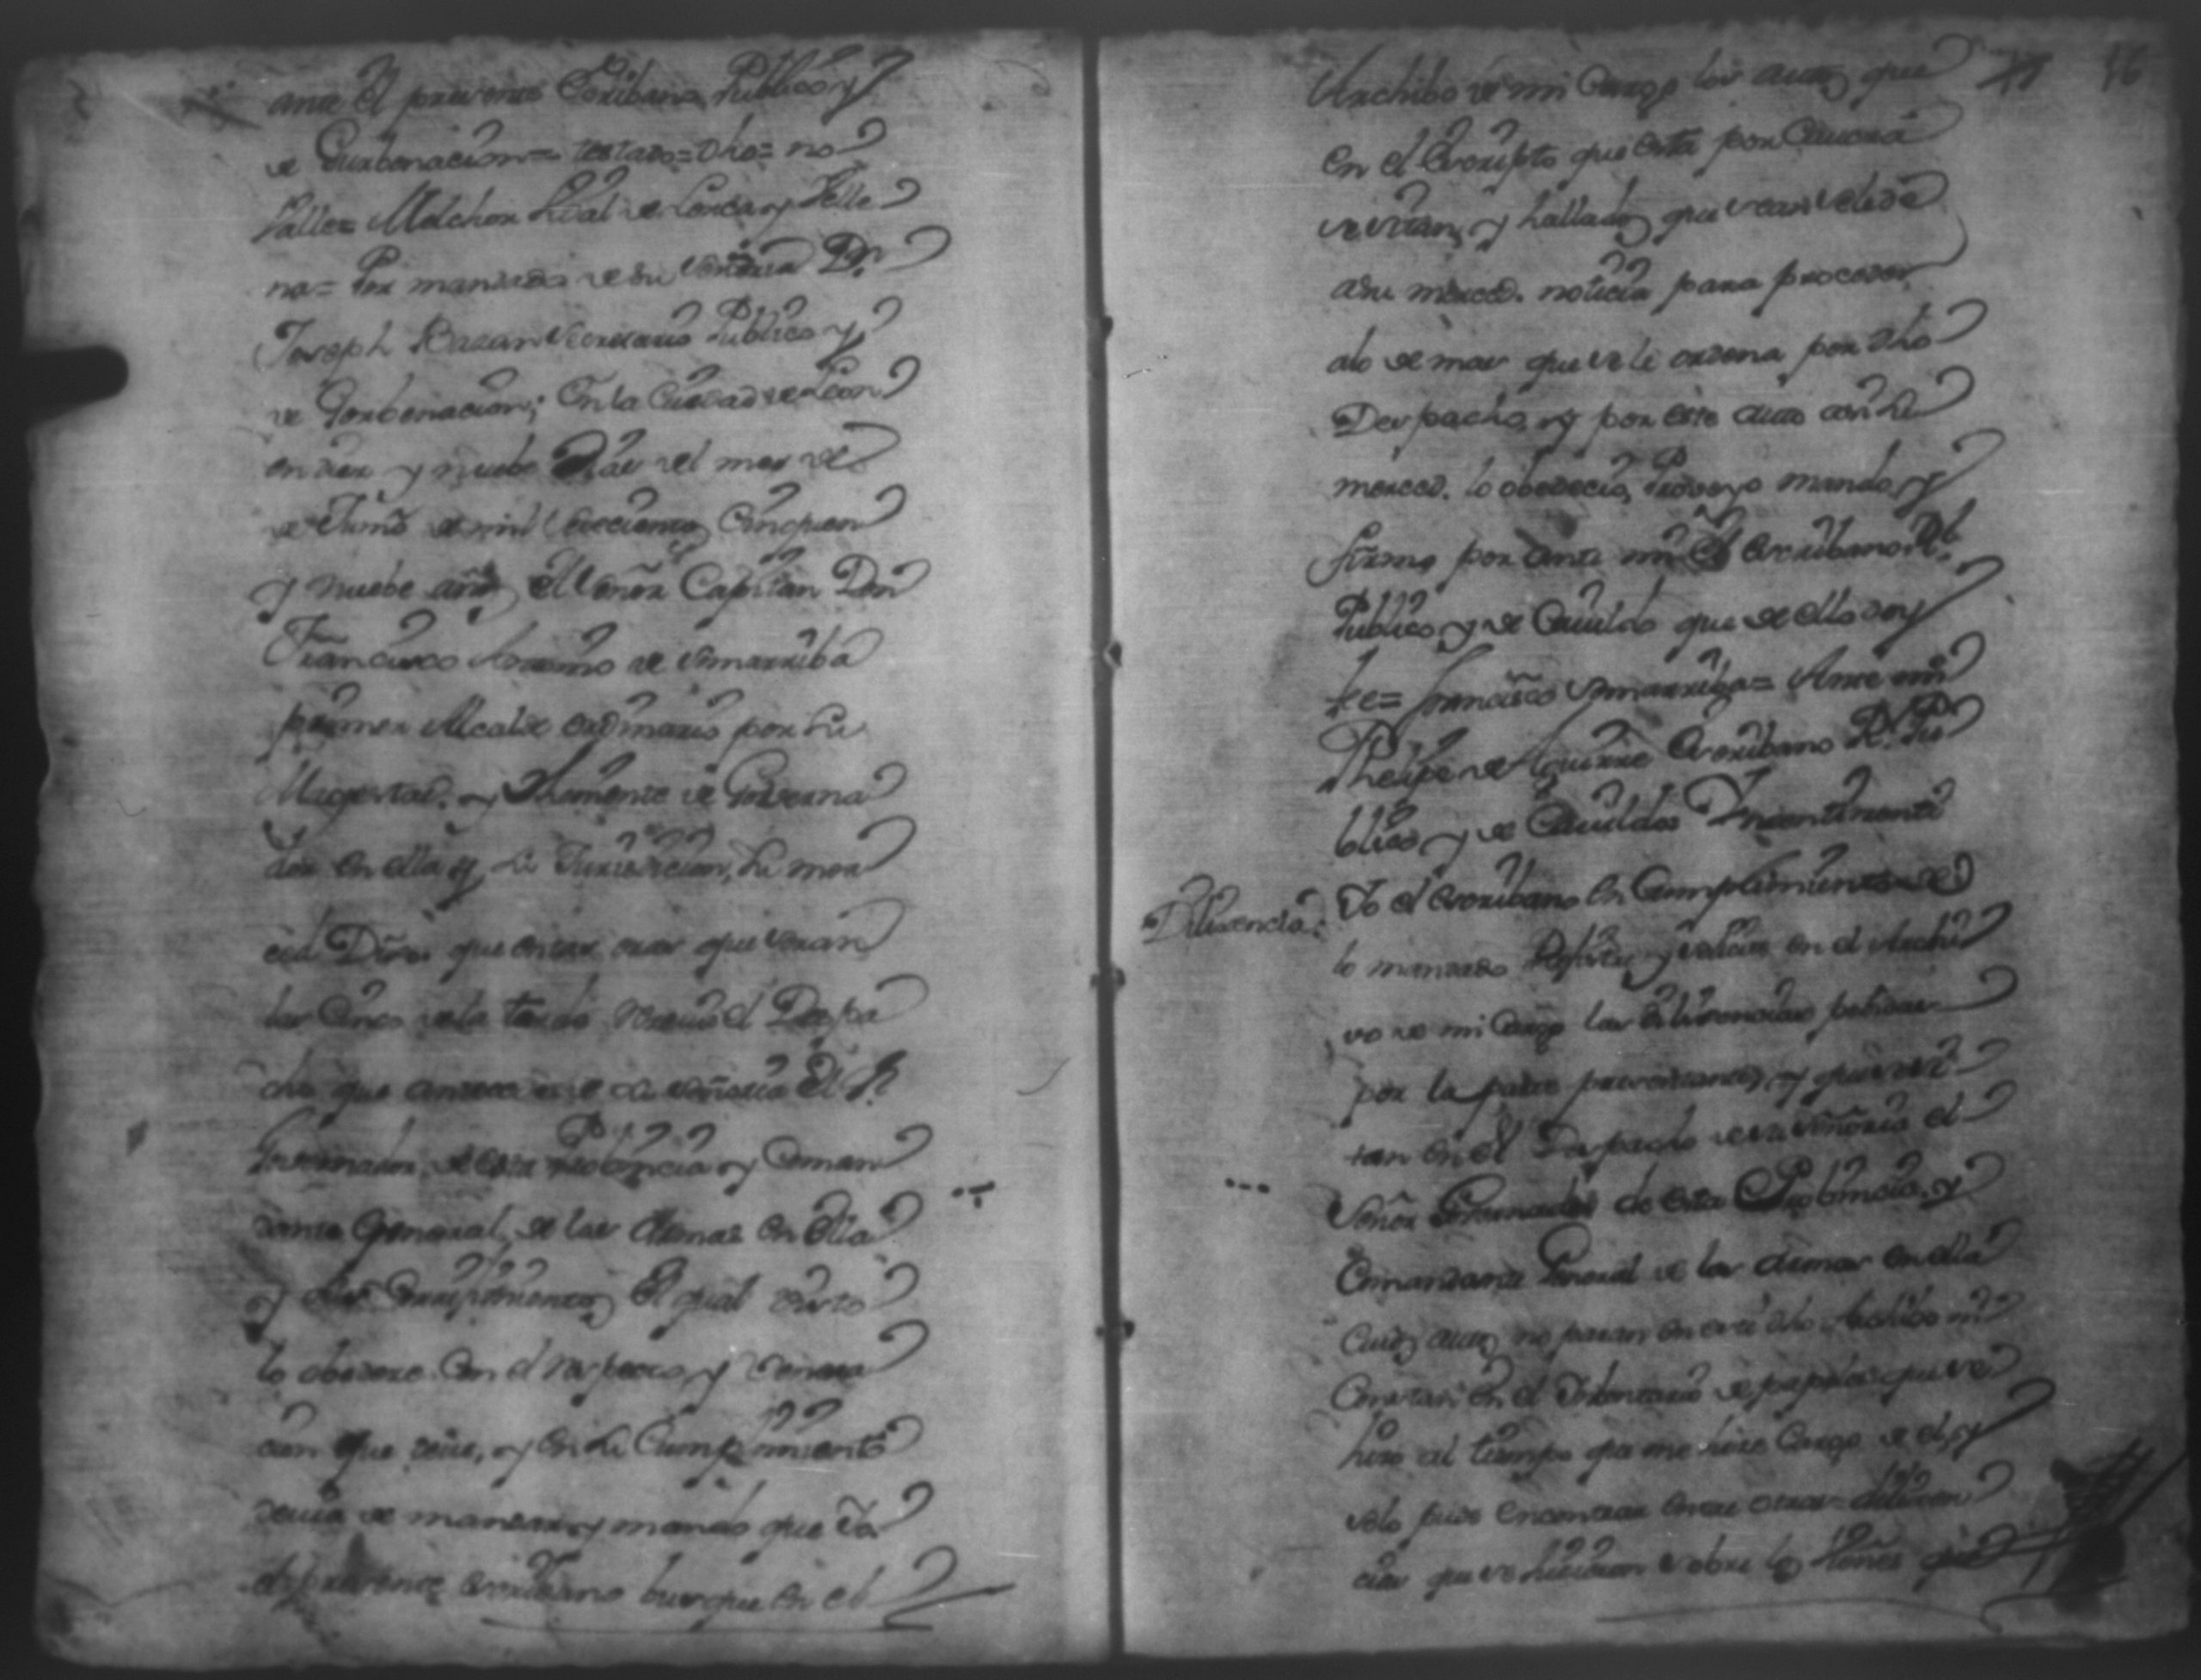 ante el presente Escribano Publico y
de Gurbenacion= testado= dho= no
valle= Melchor Vidal de Lorca y Ville
na= Por mandado de su señoria Dn
Joseph Bazan Secretario Publico y
de Gorbenacion; En la Ciudad de Leon
en diez y nuebe Dias del mes de
de Junio de mil setecientos Cinquen
y nuebe años, el señor Capitan Don
Francisco de Umarriba
primer Alcalde ordinario por su
Magestad, y Theniente de Goberna
dor en ella y su Jurisdicion, su mer
ced Dijo: que entre oras que seran
las Cinco de la tarde recivio el Despa
cho que antecede de su señoria el Sr
Governador de esta Probincia y Coman
dante General, de las Armas en ella
y sus Cumplimientos, El qual visto
lo obedece Con el respecto y venera
cion que deve, y en su Cumplimiento
devia de mandar y mando que Yo
el presente escribano busque en el
17 16
Archibo de mi Cargo los autos que
en el Escripto que esta por Cavesa
se sitan, y hallados que sean se le de
a su merced. noticia para proceder
a lo de mas que se le ordena por dho
Despacho, y por este auto asi su
merced. lo obedecio, Proveyo mando, y
firmo por ante mi el escribano Rl.
Publico y de Cavildo que de ello doy
fee= Francisco Umarriba= Ante mi
Phelipe de Aguirre Escribano Rl. Pu
blico y de Cavildo= Yncontinenti
Diligencia: Yo el escribano en Cumplimiento de
lo mandado en el Archi
vo de mi Cargo las diligencias pedidas
por la parte presentante, y que se ci
tan en el Despacho de su señoria el
Señor Governador de esta Probincia, y
Comandante General de las armas en ella
Cuios autos no paran en este dho Archibo ni
Constan en el Ynbentario de papeles que se
hizo al tiempo que me hize Cargo de el, y
solo pude encontrar entre otras diligen
cias que se hicieron sobre los que